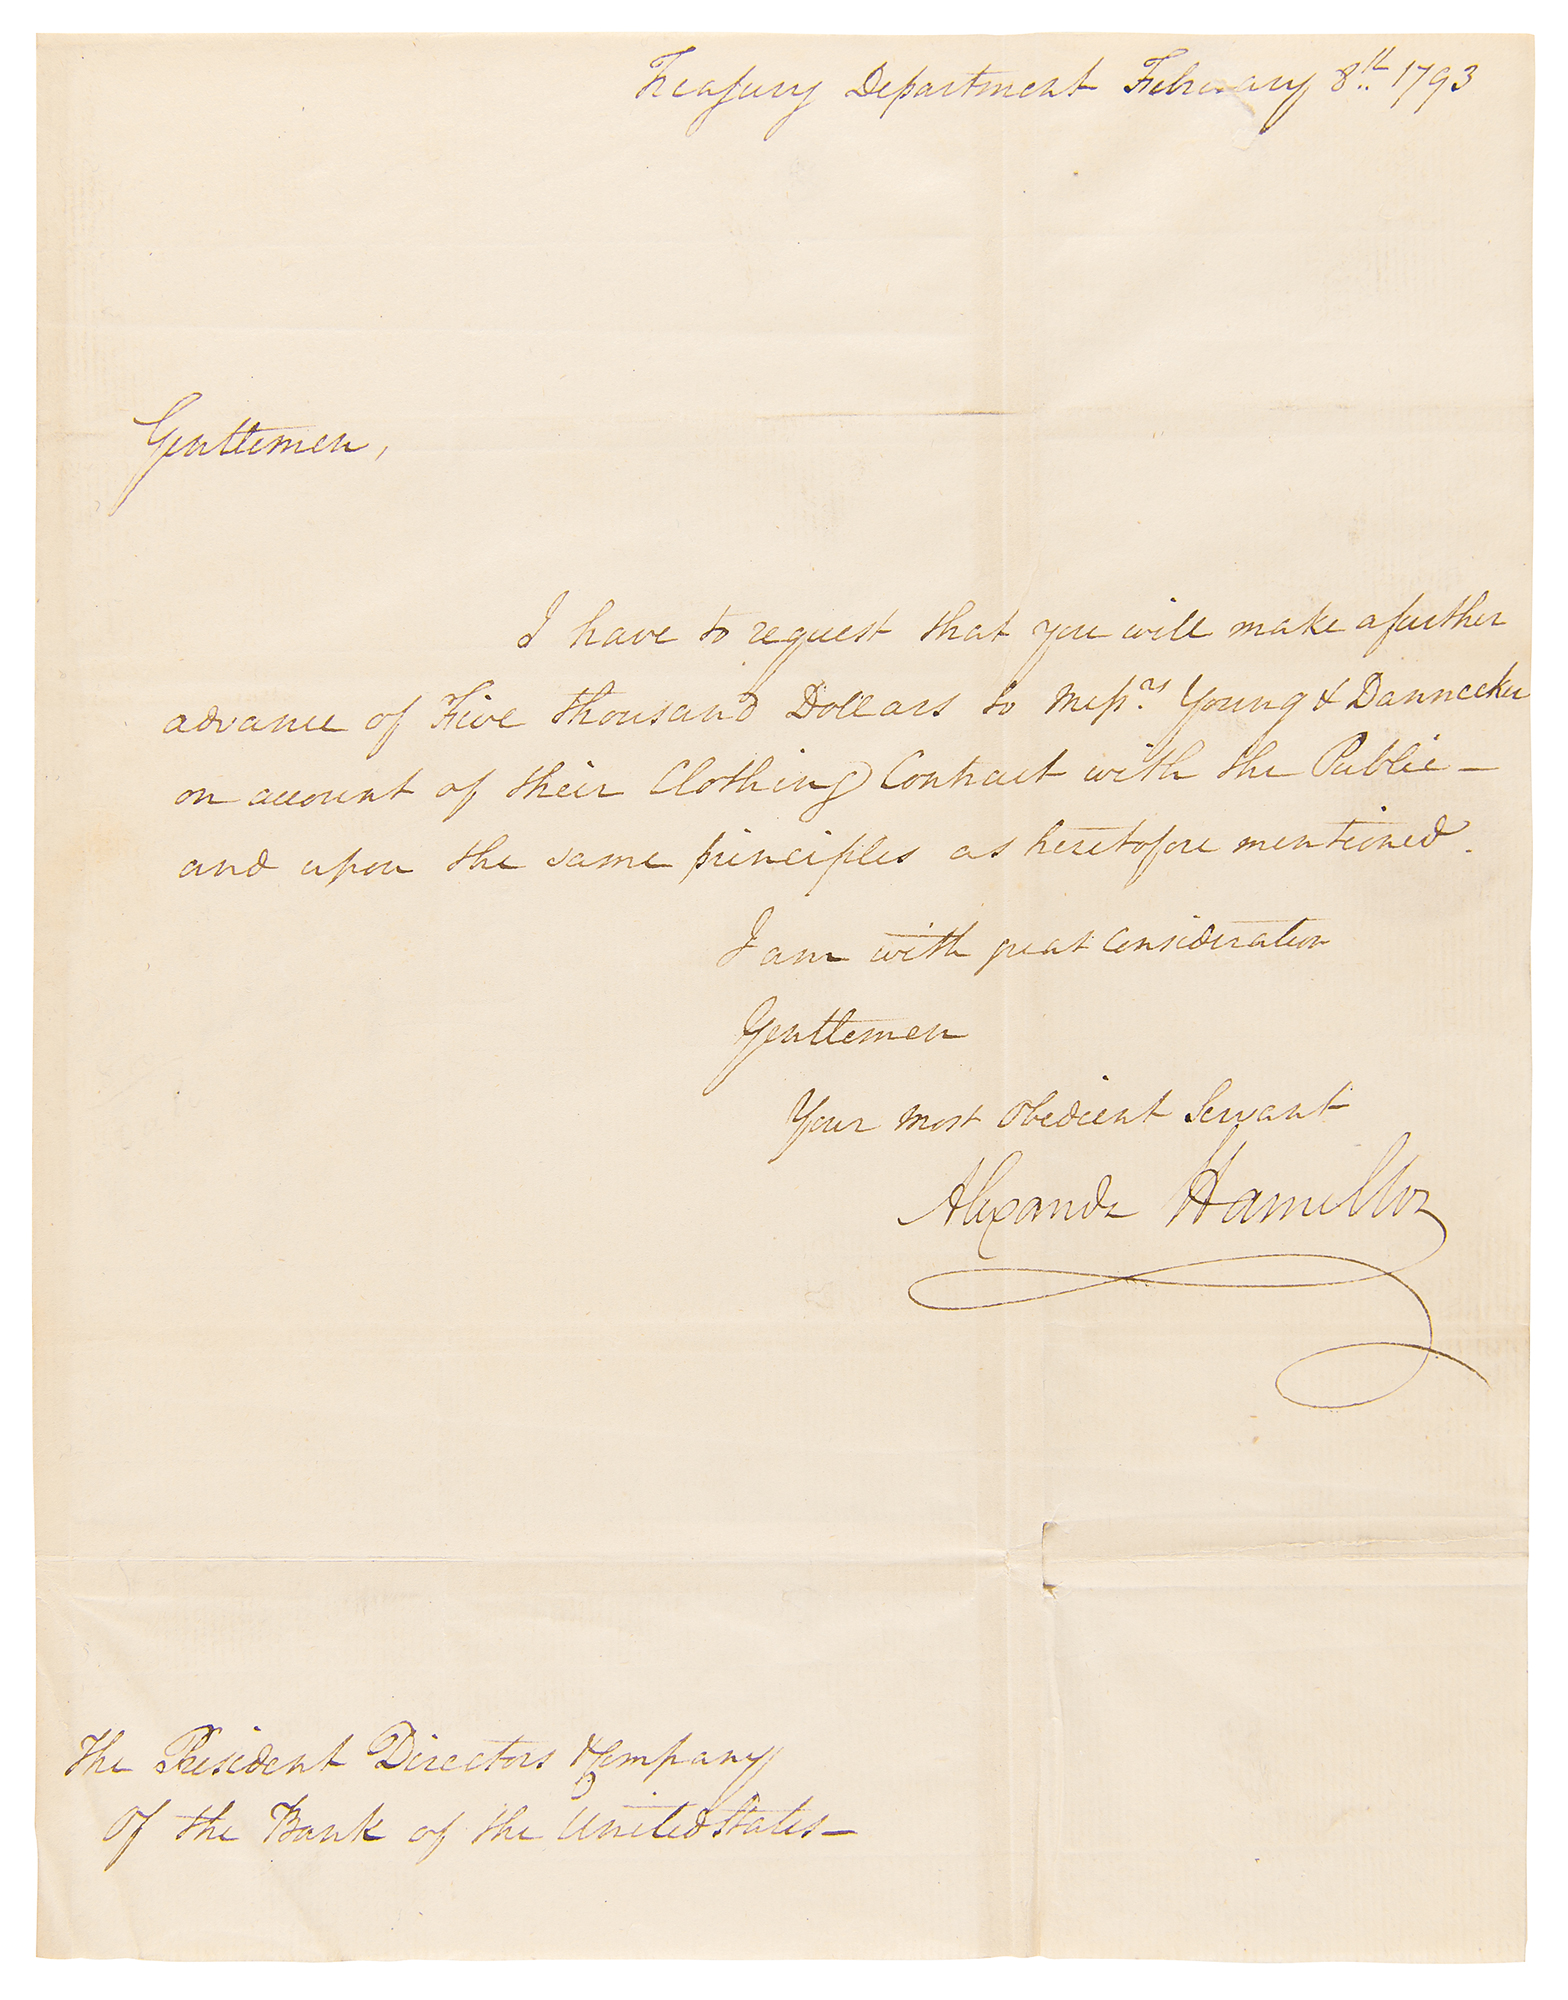 Treasury Department February 8th 1793
Gentlemen,
I have to request that you will make a further
advance of Five thousand Dollars to Messrs Young & Dannecker
on account of their Clothing Contract with the Public —
and upon the same principles as heretofore mentioned.
I am with great Consideration
Gentlemen
Your most Obedient Servant
Alexander Hamilton
The President Directors & Company
Of the Bank of the United States —